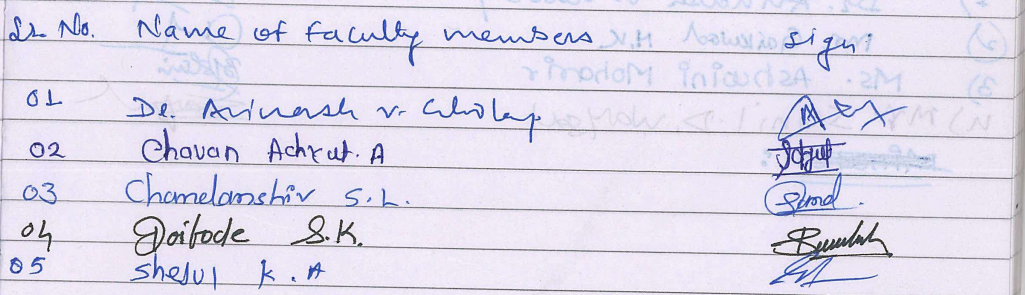 Sr. No. Name of Faculty members Sign:
01 Dr. Avinash V. Gholap
02 Chavan Achyut. A
03 Chandanshiv S.L.
04 Doifode S.K.
05 Shejul K.A